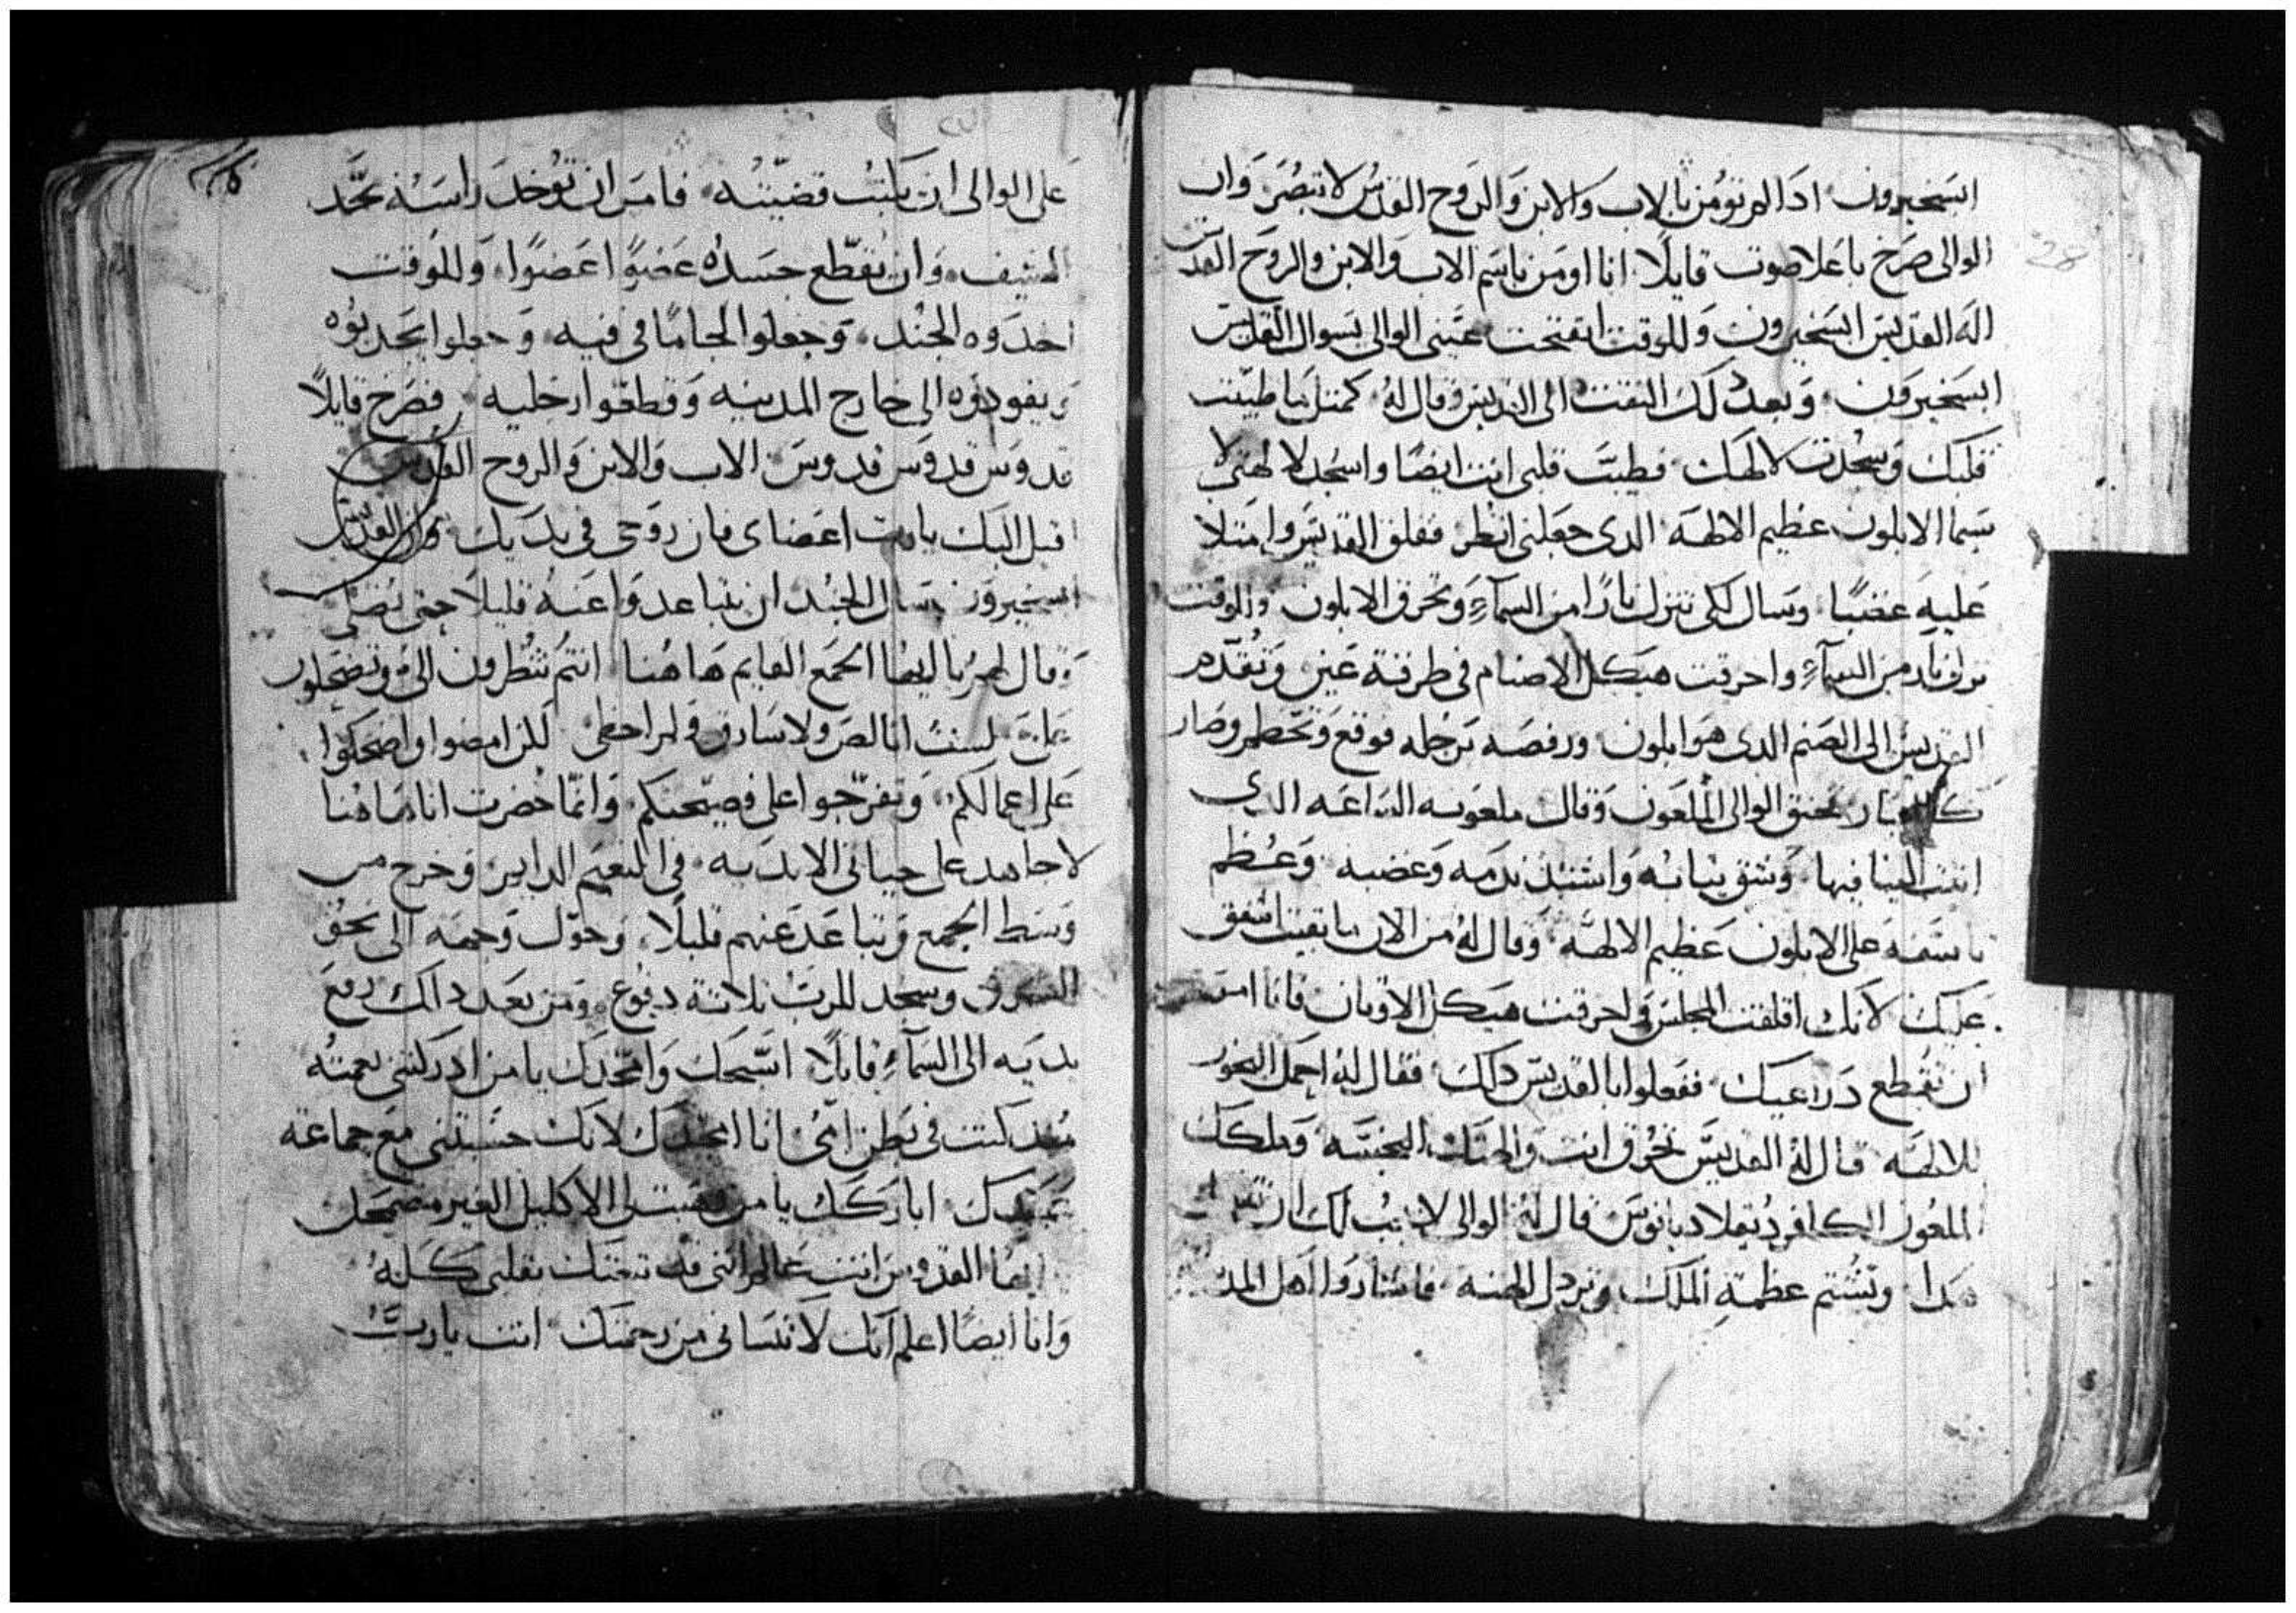 28
ابسخيرون ادا لم تومن بالاب والابن والروح القدس لا تبصر وان
الوالى صرخ باعلا صوت قايلًا انا اومن باسم الاب والابن والروح القدس
اله القديس ابسخيرون وللوقت انفتحت عينى الوالى بسوال القديس
ابسخيرون وبعد دلك التفت الى القديس وقال له كمثل ما طيبت
قلبك وسجدت لالهك فطيب قلبى انت ايضًا واسجد لالهتى لا
سيما الابلون عظيم الالهه الدى جعلنى انظر فقلق القديس وامتلا
عليه غضبًا وسال لكى تنزل نارًا من السمآء وتحرق الابلون وللوقت
نزلت نار من السمآء واحرقت هيكل الاصنام فى طرفة عين وتقدم
القديس الى الصنم الدى هو ابلون ورفصه برجله فوقع وتحطم وصار
كالغبار فحنق الوالى الملعون وقال ملعونه الساعه الدى
اتيت الينا فيها وشق ثيابه واشتد ندمه وغضبه وعظم
تاسفه على الابلون عظيم الالهه وقال له من الان ما بقيت اشفق
عليك لانك اقلقت المجلس واحرقت هيكل الاوتان فانا امر
ان تقطع دراعيك ففعلوا بالقديس دلك فقال له احمل البخور
للالهه قال له القديس تحرق انت والهتك النجسه وملكك
الملعون الكافر دقلاديانوس قال له الوالى لا يجب لك ان
هدا وتشتم عظمة الملك وتردل الهته فاشاروا اهل المد
على الوالى ان يكتب قضيته فامر ان توخد راسه بحد
السيف وان يقطع جسده عضوًا اعضوًا وللوقت
اخدوه الجند وجعلوا لجامًا فى فيه وجعلوا يجدبوه
ويقودوه الى خارج المدينه وقطعوا رجليه فصرخ قايلًا
قدوس قدوس قدوس الاب والابن والروح القدس
اقبل اليك يارب اعضاى فان روحى فى يديك وان القديس
ابسخيرون سال الجند ان يتباعدوا عنه قليلًا حتى يصلى
وقال لهم يا ايها الجمع القايم هاهنا انتم تنظرون الى وتضحكون
على لست انا لص ولا سارق ولم احطى لكن امضوا واضحكوا
على اعمالكم وتفرجوا على فضيحتكم وانما حضرت انا هاهنا
لاجاهد على حياتى الابديه فى النعيم الدايم وخرج من
وسط الجمع وتباعد عنهم قليلًا وحول وجهه الى نحو
الشرق وسجد للرب تلاتة دفوع ومن بعد دالك رفع
يديه الى السمآء قايلًا اسبحك وامجدك يا من ادركتنى نعمته
مند كنت فى بطن امى انا امجدك لانك حسبتنى مع جماعة
عبيدك اباركك يا من وهبت لى الاكليل الغير مضمحل
ايها القدوس انت عالم اننى قد تبعتك بقلبى كله
وانا ايضًا اعلم انك لا تنسانى من رحمتك انت يارب